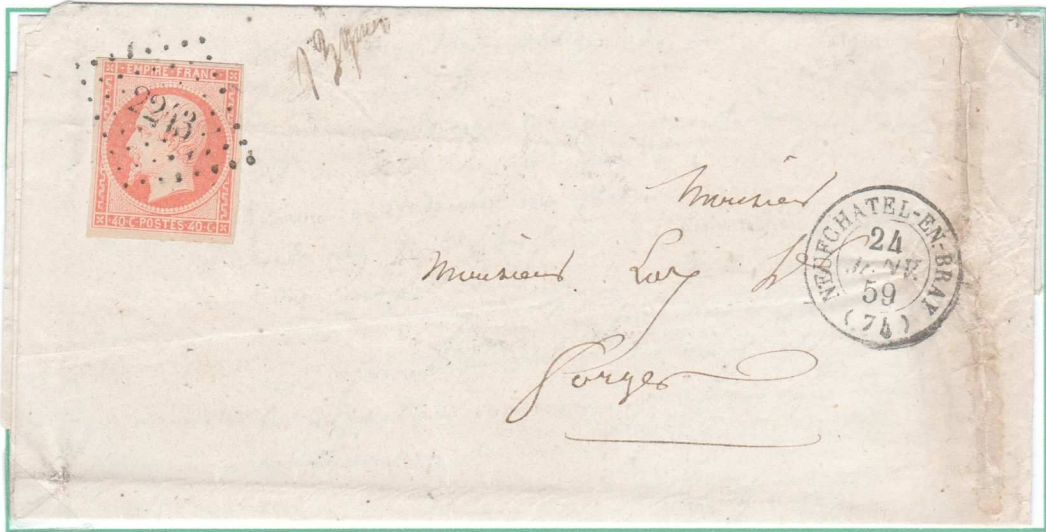 EMPIRE FRANC
2243
40 C POSTES 40 C
Monsieur
Monsieur Lory
Forges
NEUFCHATEL-EN-BRAY
24
JANV
59
(74)